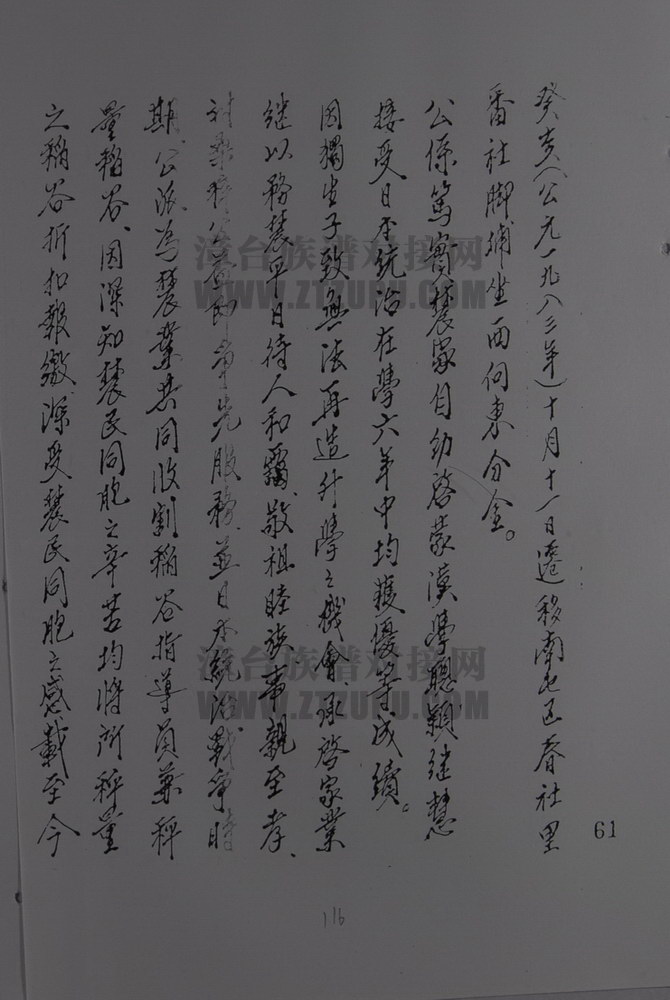 癸亥(公元一九八三年)十月十一日遷移南屯區春社里
番社脚埔坐西向東分金。
公係篤實農家自幼啓蒙漢學聰穎继慧
接受日本統治在學六年中均獲優等成績。
因獨生子致無法再造升學之機會,承啓家業
继以務農平日待人和靄、敬祖睦族事親至孝、
即率先服務並日本統治戰爭時
期、公派為農業共同收割稻谷指導員兼秤
量稻谷、因深知農民同胞之辛苦均將所秤量
之稻谷折扣報繳深受農民同胞之感載至今
61
116
海台族谱对接网
WWW.ZTZUPU.COM
海台族谱对接网
WWW.ZTZUPU.COM